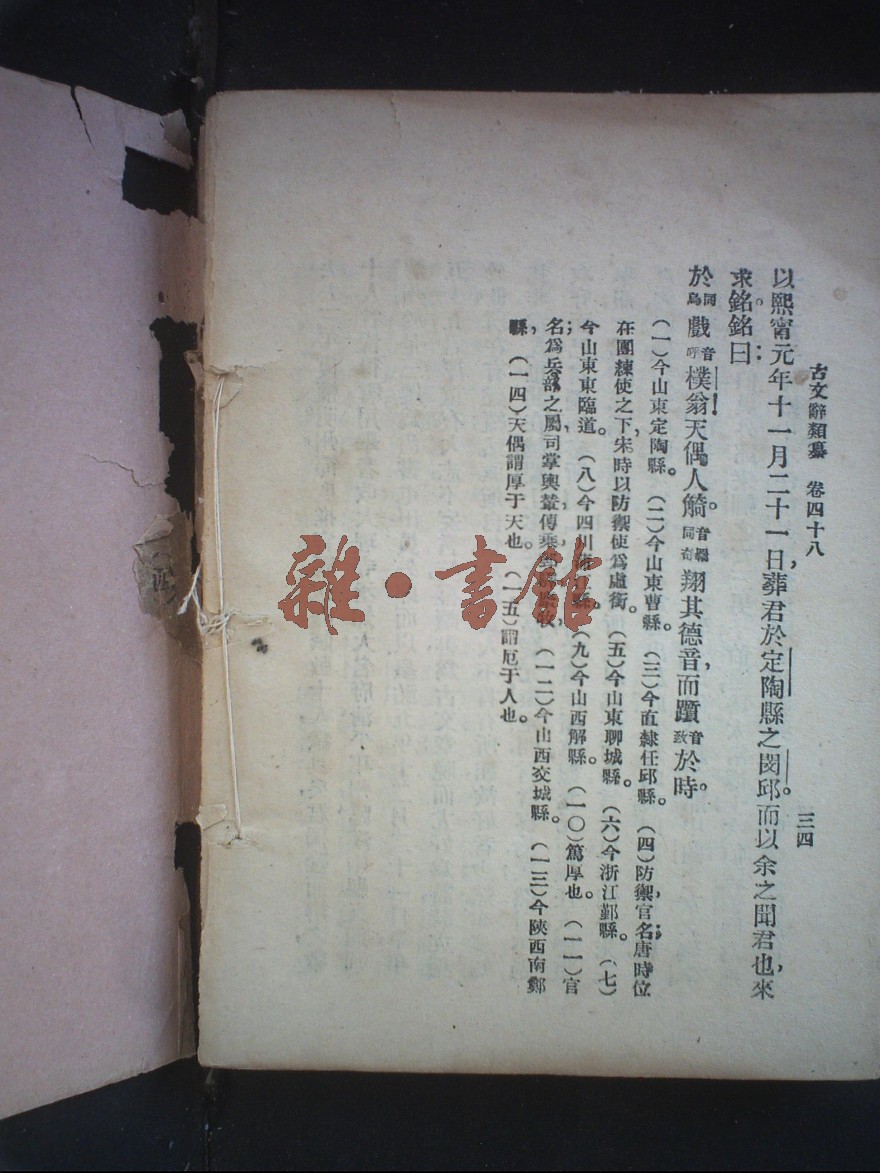 古文辭類纂　卷四十八
三四
以熙甯元年十一月二十一日，葬君於定陶縣之閔邱。而以余之聞君也，來
求銘。銘曰：
於同烏戲音呼樸翁！天偶人觭音羈同奇。翔其德音，而躓音致於時。
（一）今山東定陶縣。（二）今山東曹縣。（三）今直隸任邱縣。（四）防禦，官名；唐時位
在團練使之下，宋時以防禦使爲虛銜。（五）今山東聊城縣。（六）今浙江鄞縣。（七）
今山東東臨道。（八）今四川縣。（九）今山西解縣。（一〇）篤厚也。（一一）官
名；爲兵部之屬，司掌輿輦，傳乘，牧。（一二）今山西交城縣。（一三）今陝西南鄭
縣，（一四）天偶謂厚于天也。（一五）謂厄于人也。
雜·書館